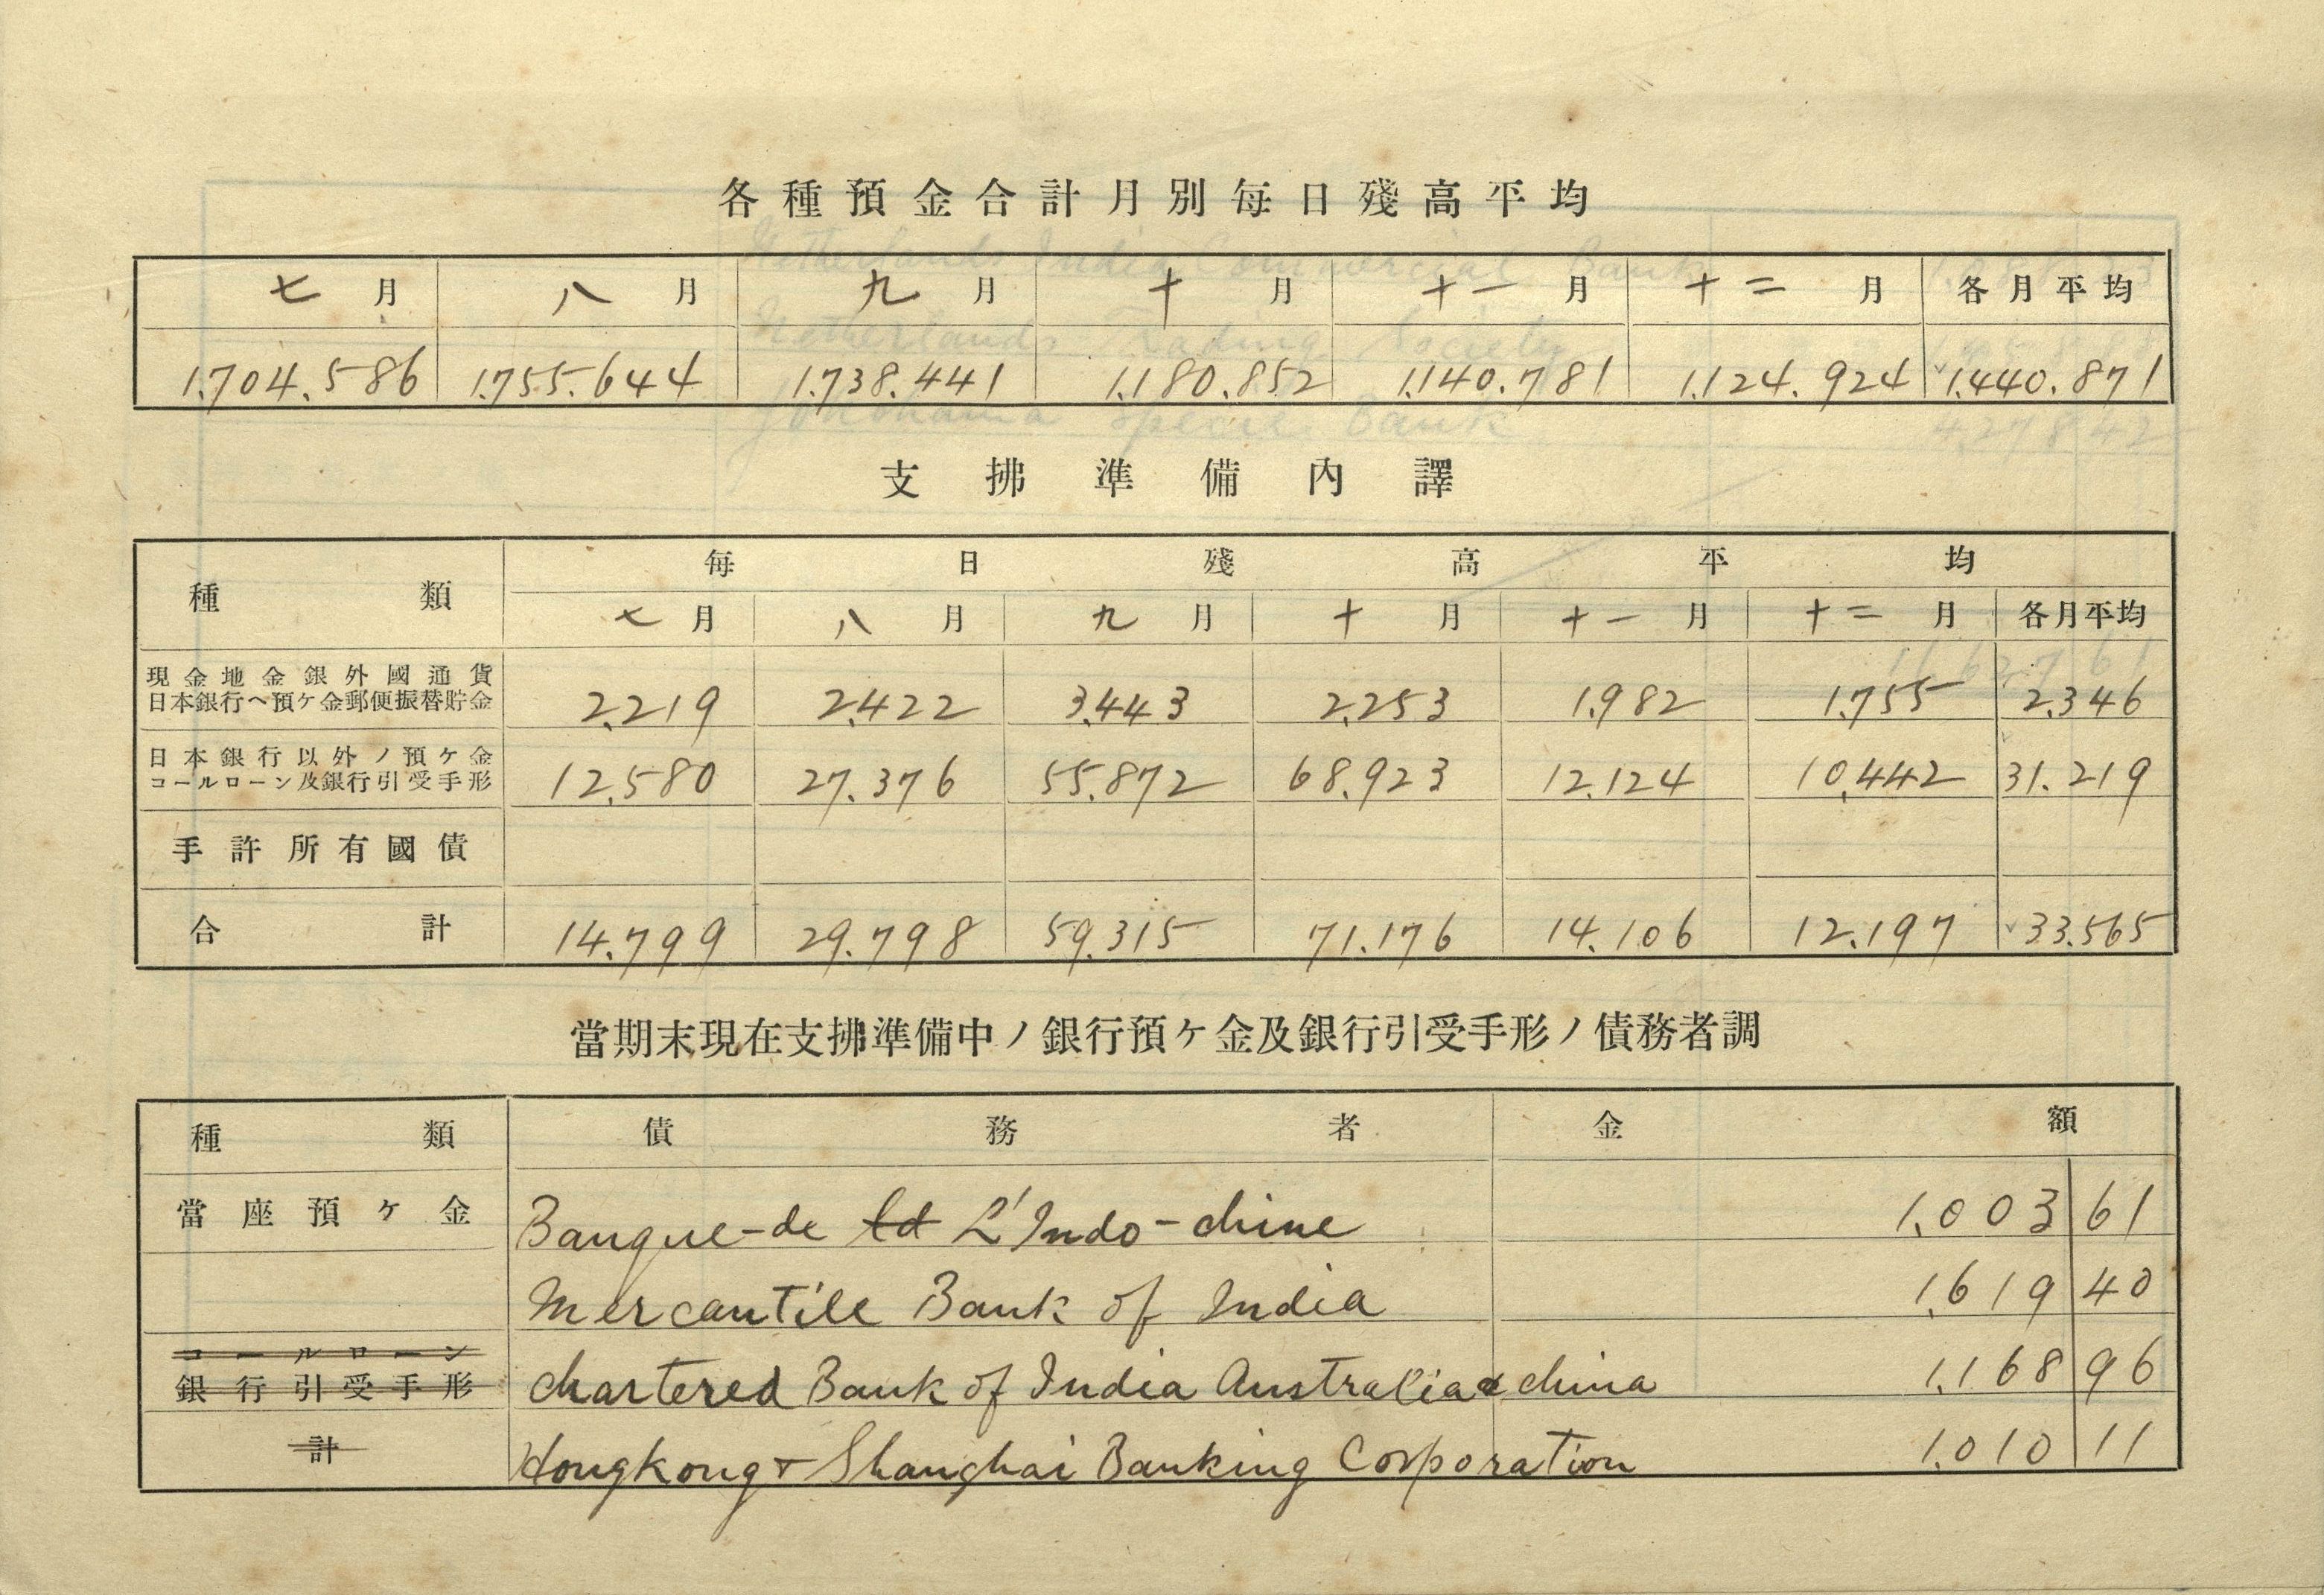 各種預金合計月別毎日殘高平均
七月 八月 九月 十月 十一月 十二月 各月平均
1.704.586 1.755.644 1.738.441 1.180.852 1.140.781 1.124.924 1.440.871
支拂準備內譯
種類 毎日殘高平均
七月 八月 九月 十月 十一月 十二月 各月平均
現金地金銀外國通貨
日本銀行ヘ預ケ金郵便振替貯金 2.219 2.422 3.443 2.253 1.982 1.755 2.346
日本銀行以外ノ預ケ金
コールローン及銀行引受手形 12.580 27.376 55.872 68.923 12.124 10.442 31.219
手許所有國債
合計 14.799 29.798 59.315 71.176 14.106 12.197 33.565
當期末現在支拂準備中ノ銀行預ケ金及銀行引受手形ノ債務者調
種類 債務者 金額
當座預ケ金 Banque-de Ld L'Indo-chine 1.003 61
Mercantile Bank of India 1.619 40
コールローン
銀行引受手形 Chartered Bank of India Australia & China 1.168 96
計 Hongkong & Shanghai Banking Corporation 1.010 11